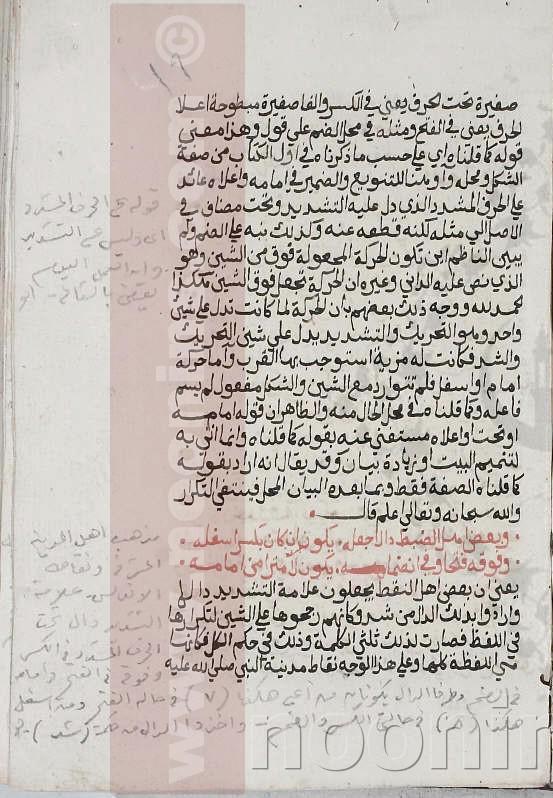 ١٩
صغيرة تحت الحرف يعني في الكسر والفا صغيرة مبطوحة اعلا
الحرف يعني في الفتح ومثله في محل الضم علي قول وهذا معني
قوله كما قلناه اي علي حسب ما ذكرناه في اول الكتاب من صفة
الشكل ومحله واو هنا للتنويع والضمير في امامه واعلاه عائد
علي الحرف المشدد الذي دل عليه التشديد وتحت مضاف في
الاصل الي مثله لكنه قطعه عنه وكذلك نبه علي الضم ولم
يبين الناظم اين تكون الحركة المجعولة فوق من الشين وهو
الذي نص عليه الداني وغيره ان الحركة تجعل فوق الشين هكذا
الحمد لله ووجه ذلك بعضهم بان الحركة لما كانت تدل علي شئ
واحد وهو التحريك والتشديد يدل علي شيئين التحريك
والشد فكانت له مزية استوجب بها القرب واما حركة
امام او اسفل فلم تتوارد مع الشين والشكل مفعول لم يسم
فاعله وكما قلناه في محل الحال منه والظاهر ان قوله امامه
او تحت او اعلاه مستغني عنه بقوله كما قلناه وانما اتي به
لتتميم البيت او زيادة بيان وقد يقال انه اراد بقوله
كما قلناه الصفة فقط وبما بعده البيان المحل فينتفي التكرار
والله سبحانه وتعالي اعلم قال
وبعض اهل الضبط دالا جعله يكون ان كان بكسر اسفله
وفوقه فتحا وفي انضمامه يكون لا امتراء من امامه
يعني ان بعض اهل النقط يجعلون علامة التشديد دال
وارادوا بذلك الدال من شد وكانهم رجحوها علي الشين لتكرارها
في اللفظ فصارت لذلك ثلثي الكلمة وذلك في حكم الكل فكانت
هي اللفظة كلها وعلي هذا الوجه نقاط مدينة النبي صلي الله عليه
قوله علي الحرف المشدد
مذهب اهل المدينة
علامة
التشديد دال تحت
الحرف المشدد في الكسر
وفوق في الفتح وامامه
في الضم وطرفا الدال يكونان من اعلي هكذا (٧) في حالة الفتح ومن اسفل
هكذا في حالتي الكسر والضم واخذوا الدال من كلمة (شد)
noorin